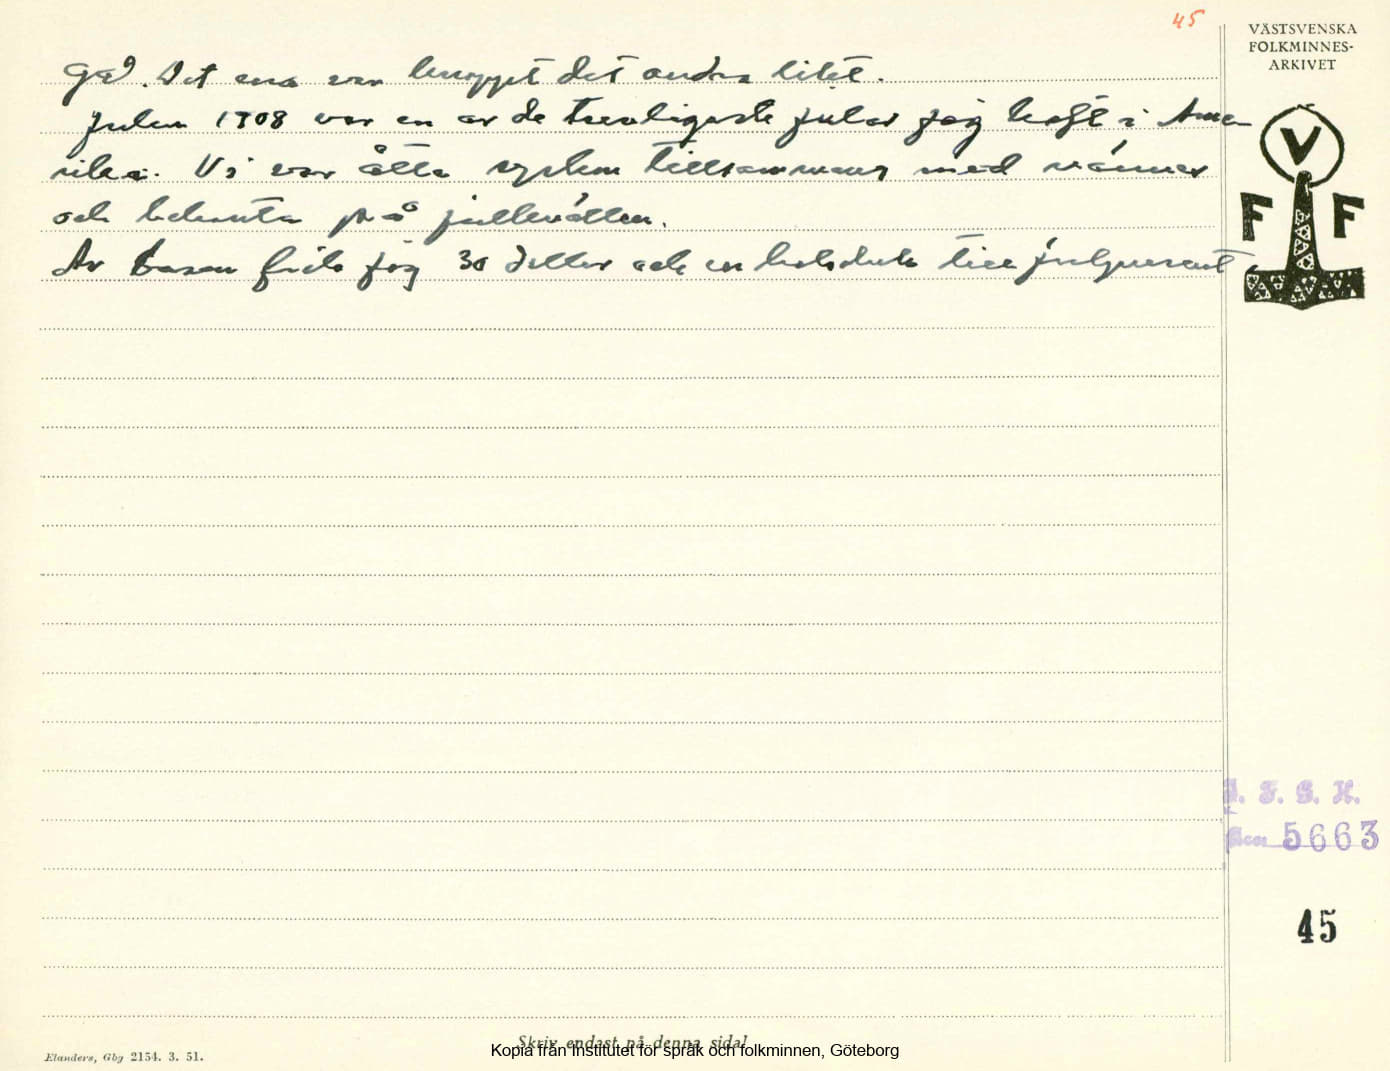 45
VÄSTSVENSKA
FOLKMINNES-
ARKIVET
gå. Det ena var bra det andra litet.
Julen 1908 var en av de trevligaste jular jag haft i Ame-
rika. Vi var åtta syskon tillsammans med vänner
och bekanta på julkvällen.
Av basen fick jag 30 dollar och en halsduk till julpresent
V
F F
I. F. G. H.
Acc. 5663
45
Skriv endast på denna sida!
Kopia från Institutet för språk och folkminnen, Göteborg
Elanders, Gbg 2154. 3. 51.